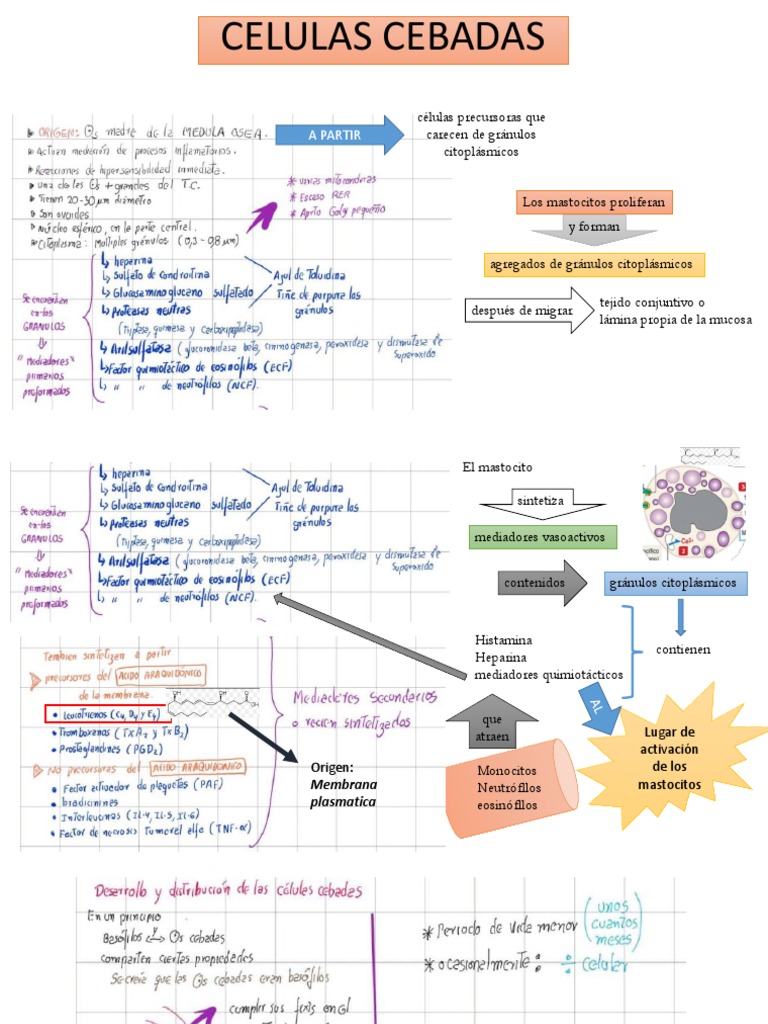 CELULAS CEBADAS
▸ ORIGEN: Cs madre de la MEDULA OSEA.
A PARTIR
células precursoras que
carecen de gránulos
citoplásmicos
• Actuan mediación de procesos inflamatorios.
• Reacciones de hipersensibilidad inmediata.
• una de las Cs + grandes del T.C.
• Tienen 20-30 μm diámetro
• Son ovoides
• Núcleo esférico, en la parte central.
• Citoplasma: Multiples gránulos (0,3-0,8 μm)
* varias mitocondrias
* Escaso RER
* Apto Golgi pequeño
Los mastocitos proliferan
y forman
agregados de gránulos citoplásmicos
después de migrar
tejido conjuntivo o
lámina propia de la mucosa
Se encuentran
en los
GRANULOS
"Mediadores"
primarios
preformados
↳ heparina
↳ Sulfato de condroitina
↳ Glucosaminoglucano sulfatado
↳ proteasas neutras
(triptasa, quimasa y carboxipeptidasa)
↳ Arilsulfatasa (glucoronidasa beta, cininogenasa, peroxidasa y dismutasa de
superoxido
↳ Factor quimiotáctico de eosinófilos (ECF)
↳ " " de neutrófilos (NCF).
Azul de Toluidina
Tiñe de purpura los
gránulos
Se encuentran
en los
GRANULOS
"Mediadores"
primarios
preformados
↳ heparina
↳ Sulfato de condroitina
↳ Glucosaminoglucano sulfatado
↳ proteasas neutras
(triptasa, quimasa y carboxipeptidasa)
↳ Arilsulfatasa (glucoronidasa beta, cininogenasa, peroxidasa y dismutasa de
superoxido
↳ Factor quimiotáctico de eosinófilos (ECF)
↳ " " de neutrófilos (NCF).
Azul de Toluidina
Tiñe de purpura los
gránulos
El mastocito
sintetiza
mediadores vasoactivos
contenidos
gránulos citoplásmicos
Ca2+
contienen
Histamina
Heparina
mediadores quimiotácticos
AL
Lugar de
activación
de los
mastocitos
que
atraen
Monocitos
Neutrófllos
eosinófllos
Tambien sintetizan a partir
▸ precursores del ACIDO ARAQUIDÓNICO
de la membrana
• Leucotrienos (C4, D4 y E4)
• Tromboxanos (TXA2 y TXB2)
• Prostaglandinas (PGD2)
▸ No precursores del ACIDO ARAQUIDÓNICO
• Factor activador de plaquetas (PAF)
• bradicininas
• Interleucinas (IL-4, IL-5, IL-6)
• Factor de necrosis Tumoral alfa (TNF-α)
Mediadores Secundarios
o recien sintetizados
Origen:
Membrana
plasmatica
Desarrollo y distribución de las células cebadas
En un principio
Basófilos y Cs cebadas
comparten ciertas propiedades
Se creía que las Cs cebadas eran basófilos
* Periodo de vida menor (unos
cuantos
meses)
* ocasionalmente: ÷ celular